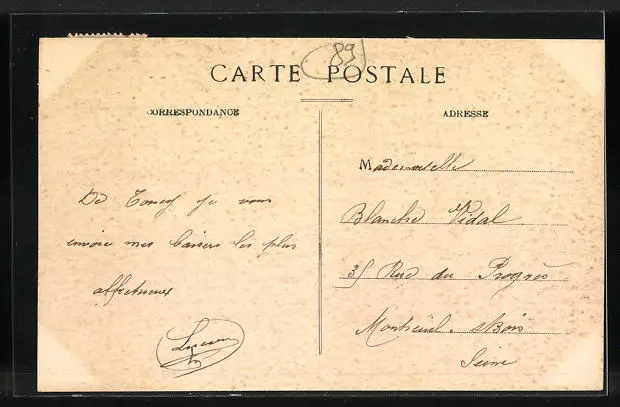 89
CARTE POSTALE
CORRESPONDANCE
ADRESSE
De Toucy je vous
envoie mes baisers les plus
affectueux
Lucien
Mademoiselle
Blanche Vidal
Rue du Progrès
Montreuil. s/Bois
Seine